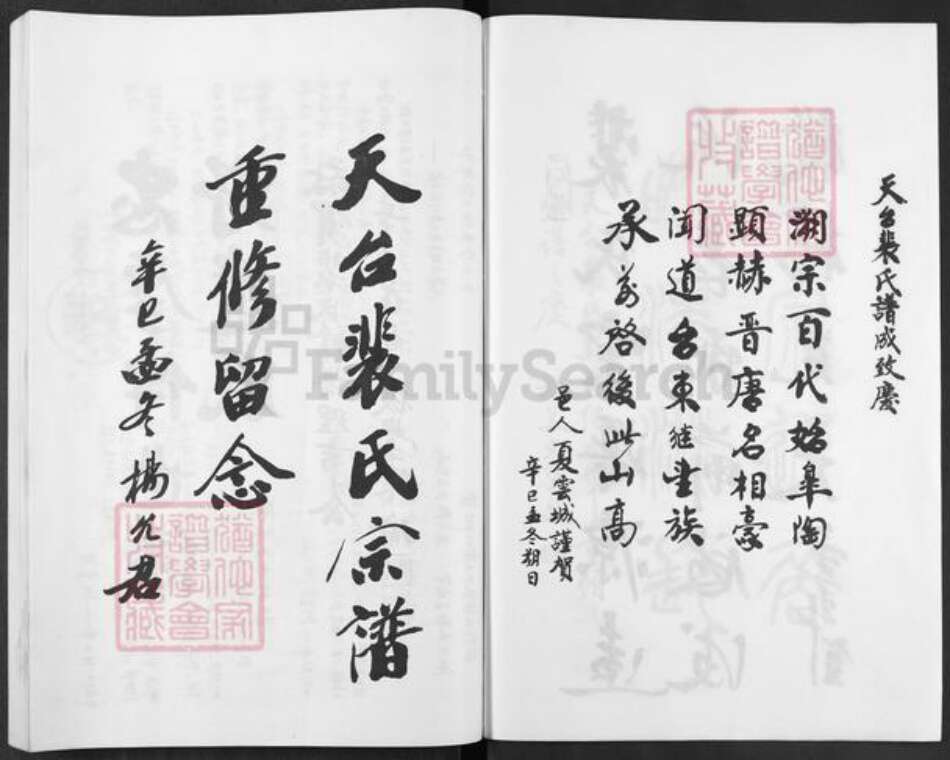 天台裴氏譜成致慶
溯宗百代始皋陶
顯赫晋唐名相豪
聞道台東继望族
承前啓後此山高
邑人夏雲城謹賀
辛巳孟冬朔日
天台裴氏宗譜
重修留念
辛巳孟冬楊允君
FamilySearch
譜學會
收藏
譜學會
收藏